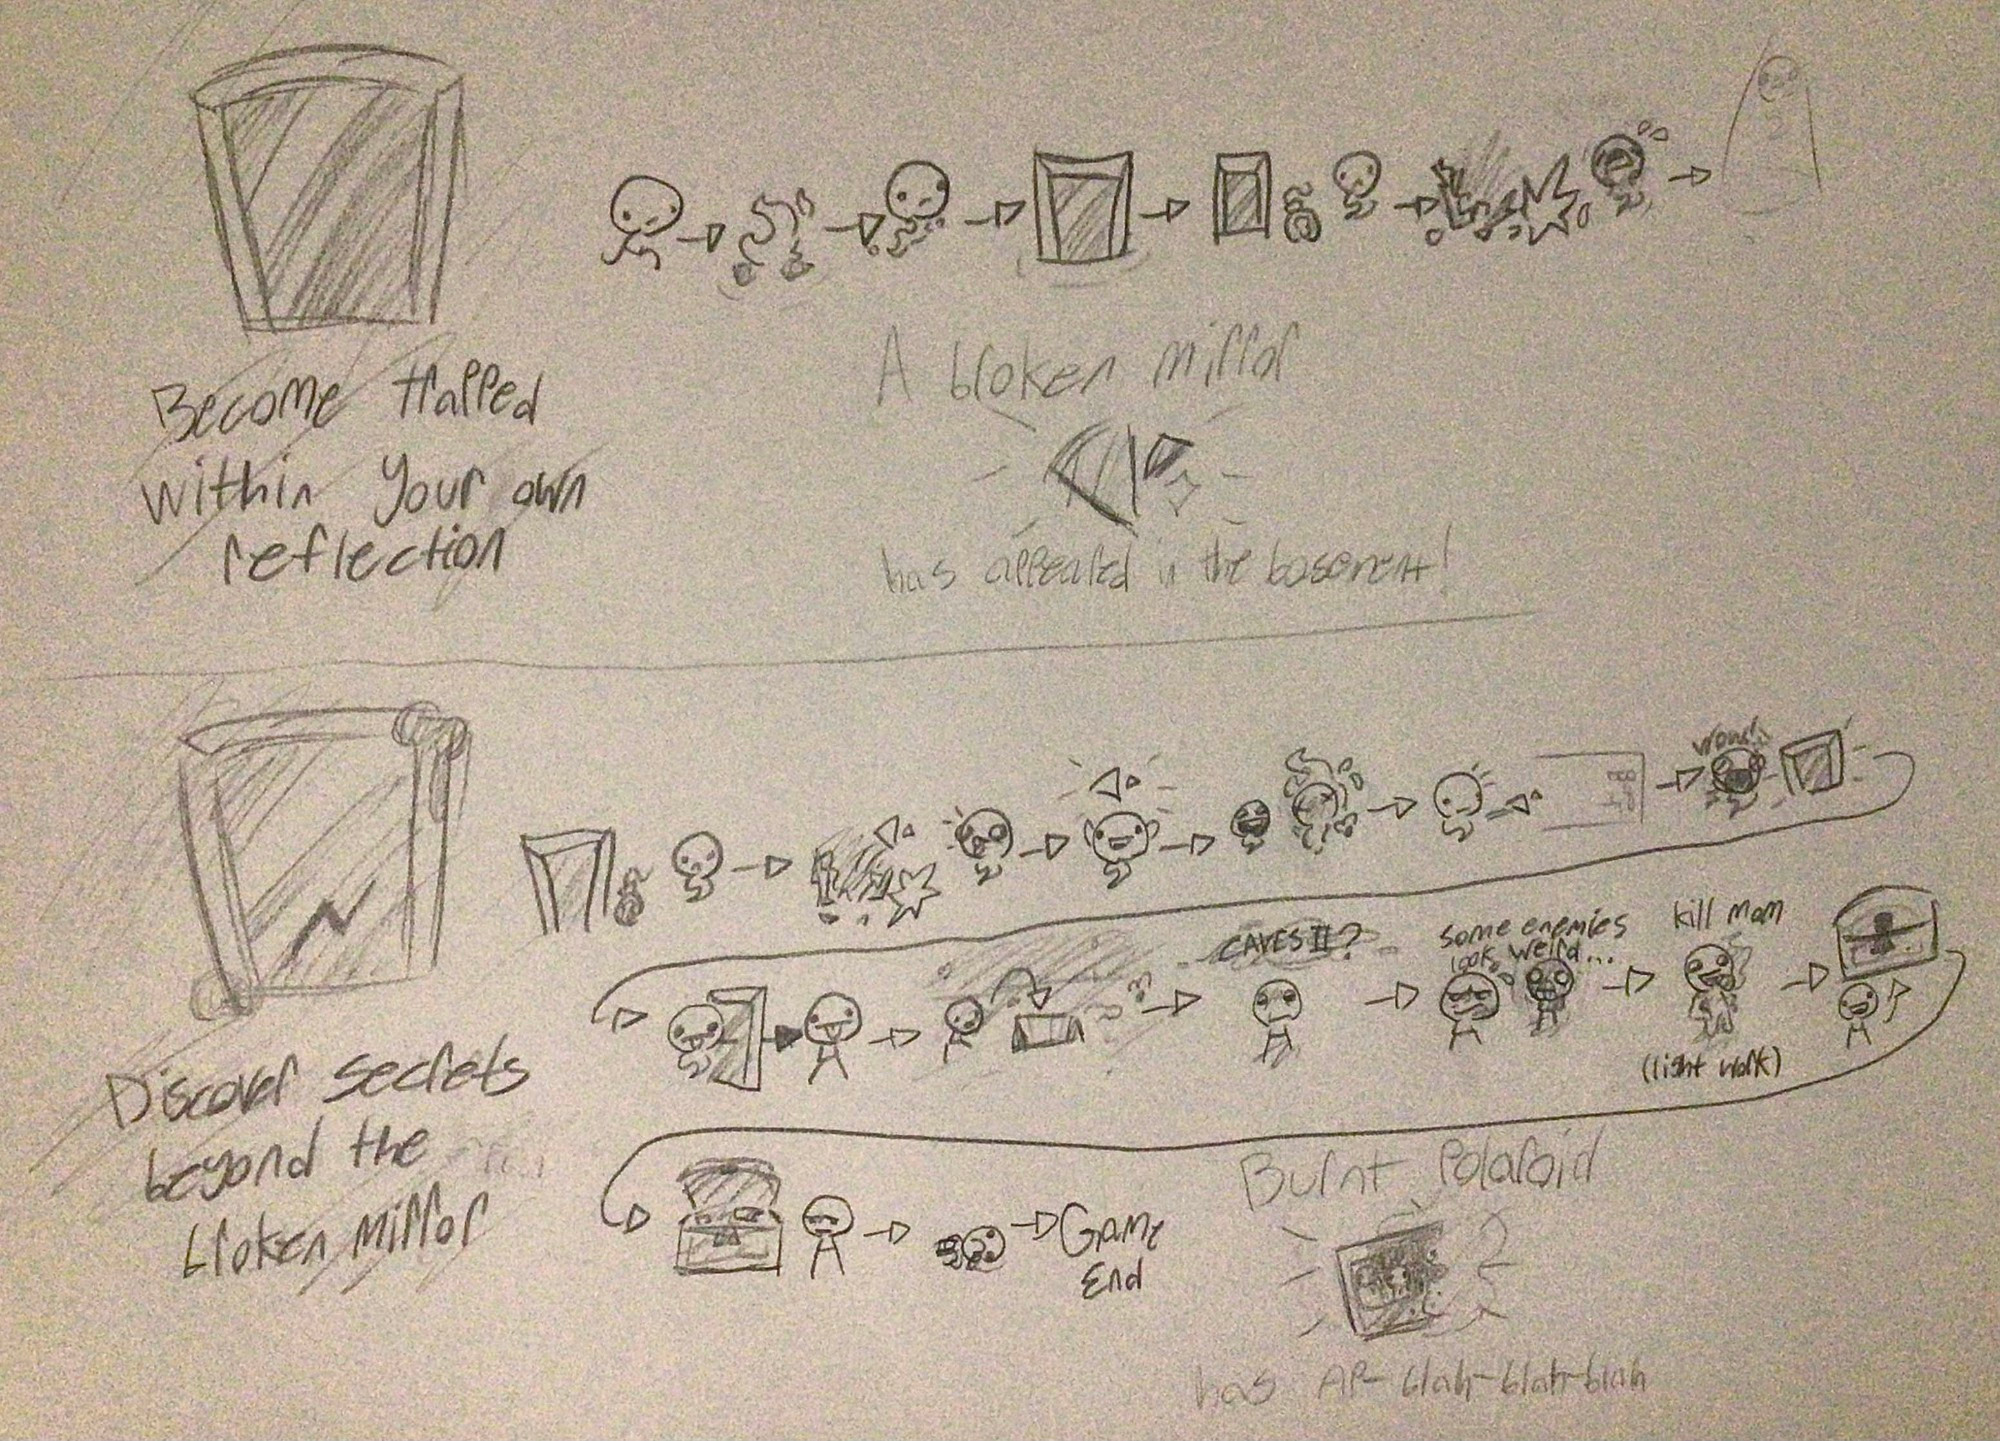 Become trapped
within your own
reflection
A broken mirror
has appeared in the basement!
Discover secrets
beyond the
broken mirror
wow!
CAVES II?
some enemies
look weird...
kill mom
(light work)
Game
End
Burnt Polaroid
has AP-blah-blah-blah